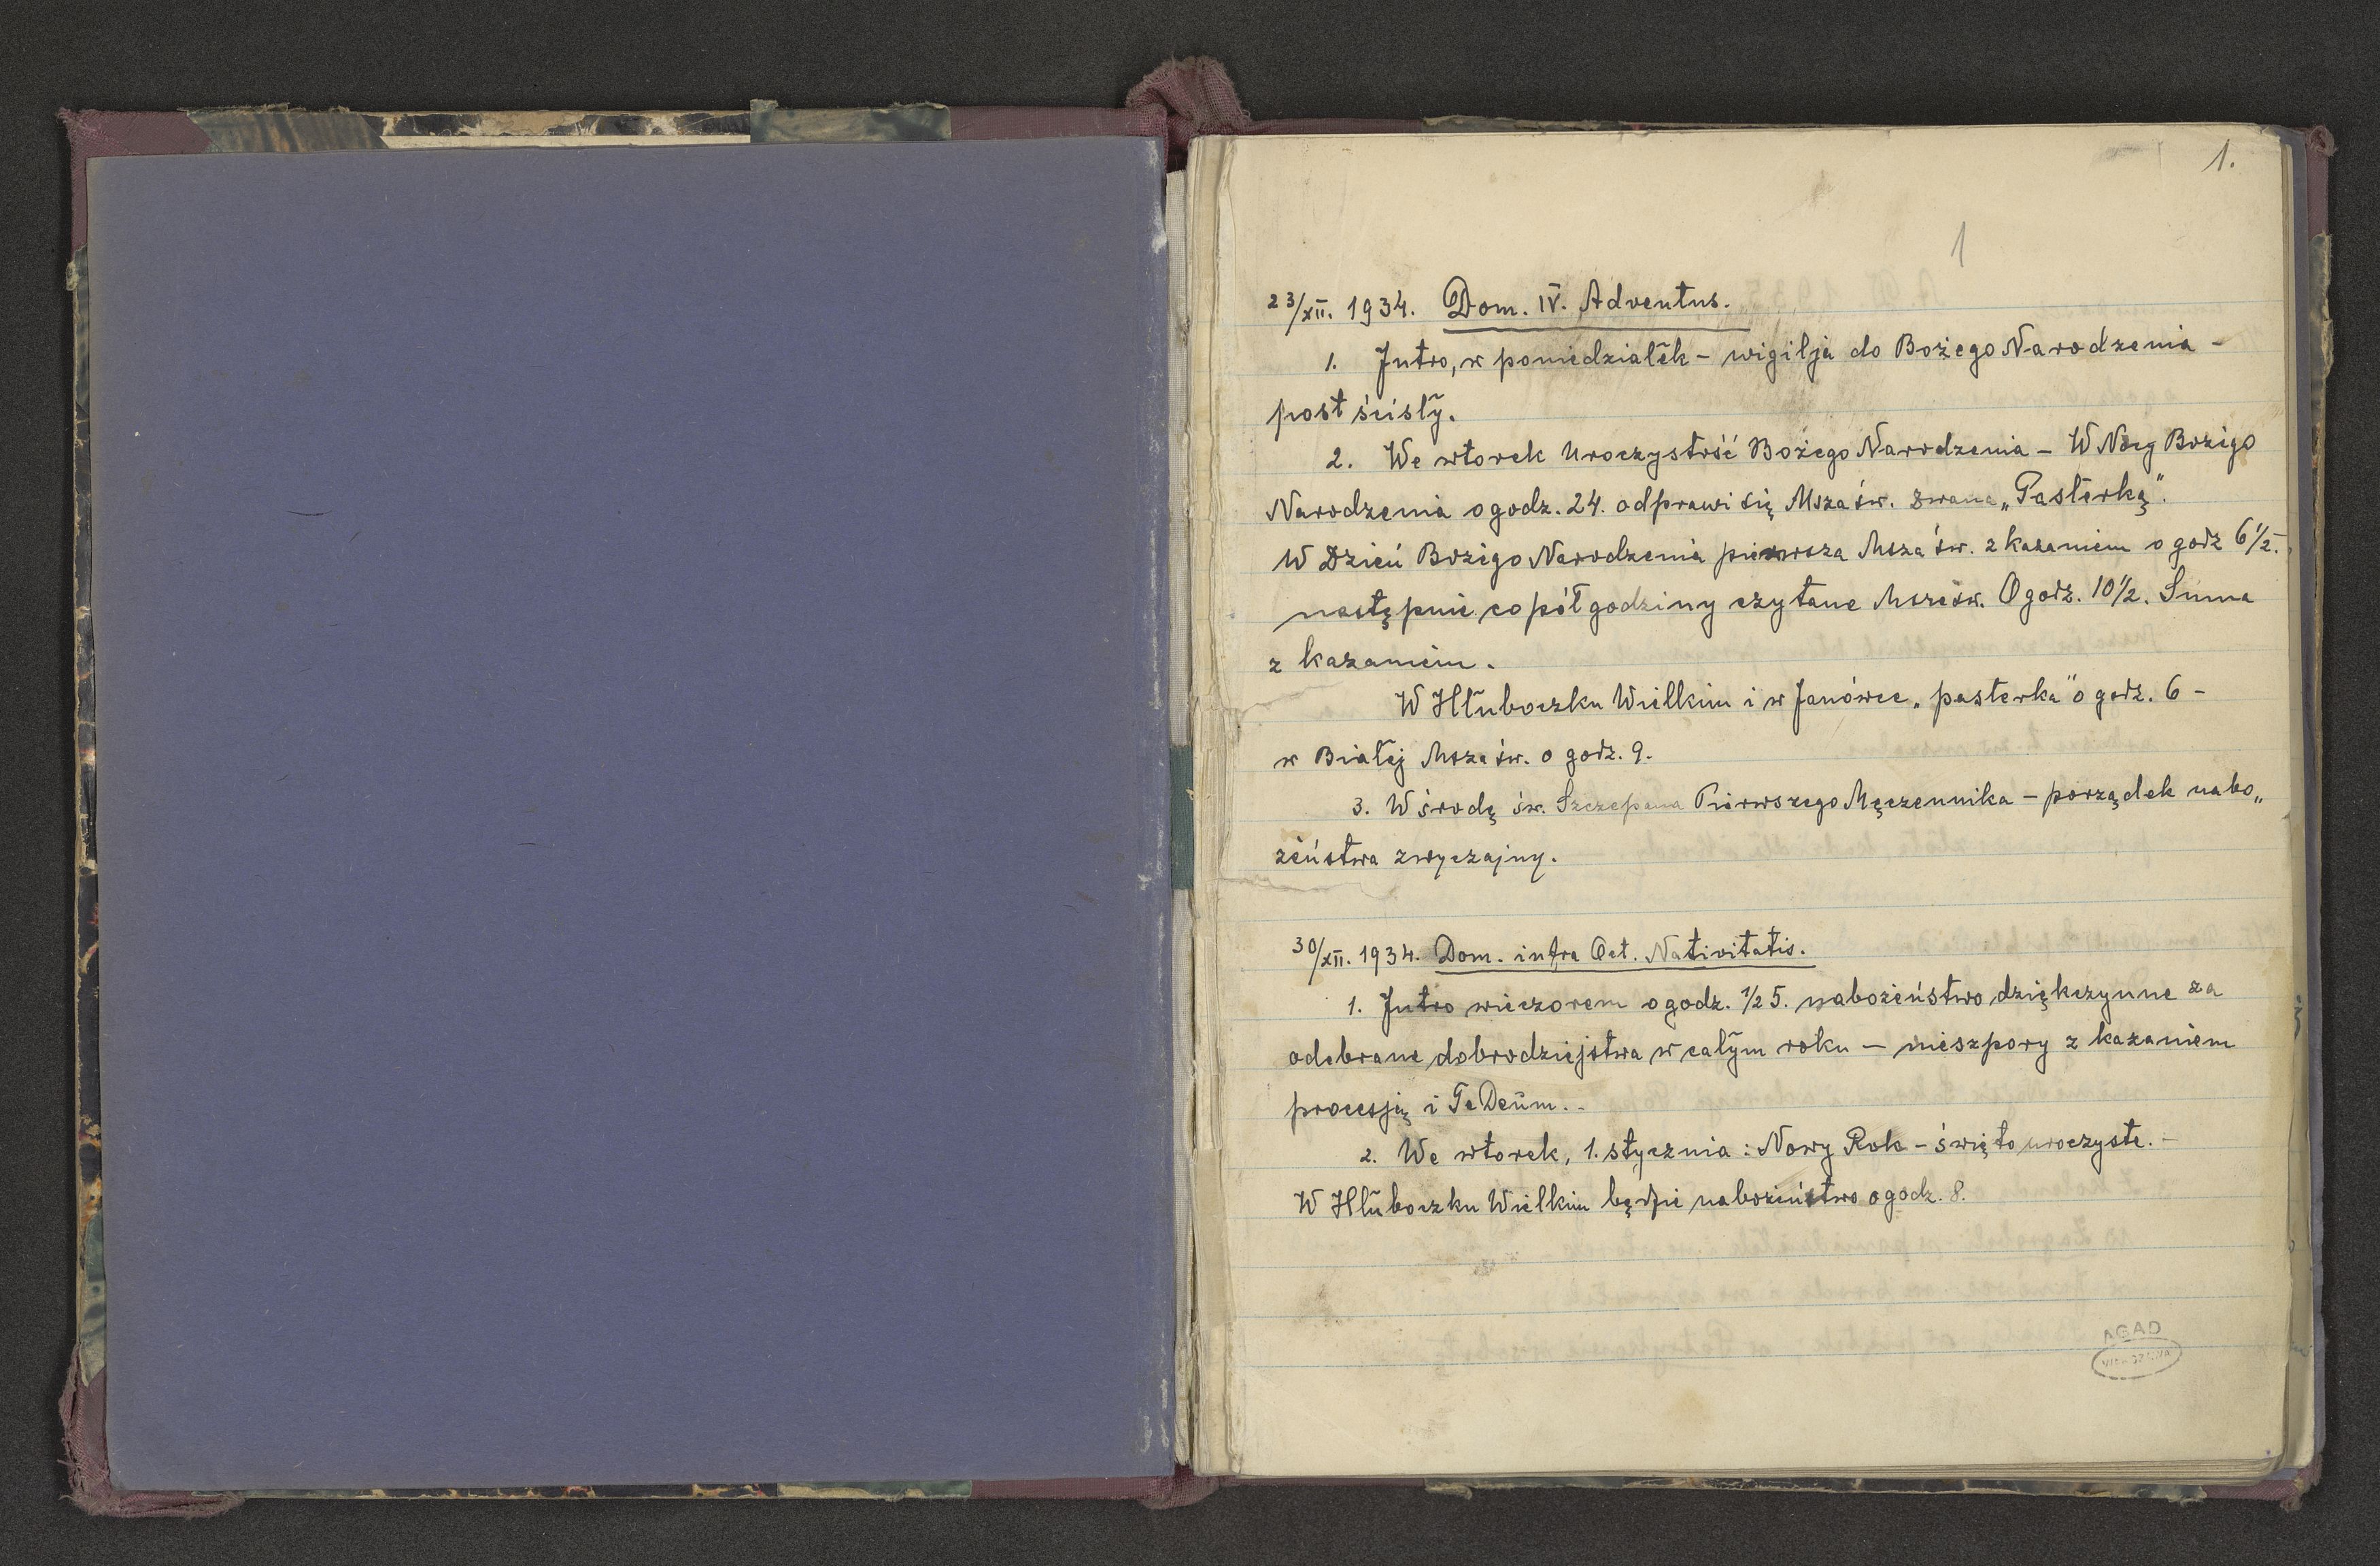 1.
1
23/XII. 1934. Dom. IV. Adventus.
1. Jutro, w poniedziałek - wigilja do Bożego Narodzenia -
post ścisły.
2. We wtorek Uroczystość Bożego Narodzenia - W Nocy Bożego
Narodzenia o godz. 24. odprawi się Msza św. zwana „Pasterką".
W Dzień Bożego Narodzenia pierwsza Msza św. z kazaniem o godz 6 1/2.
następnie co pół godziny czytane Msze św. O godz. 10 1/2. Suma
z kazaniem.
W Hłuboczku Wielkim i w Janówce „pasterka" o godz. 6 -
w Białej Msza św. o godz. 9.
3. W środę św. Szczepana Pierwszego Męczennika - porządek nabo„
żeństwa zwyczajny.
30/XII. 1934. Dom. infra Oct. Nativitatis.
1. Jutro wieczorem o godz. 1/2 5. nabożeństwo dziękczynne za
odebrane dobrodziejstwa w całym roku - nieszpory z kazaniem
procesją i Te Deum. -
2. We wtorek, 1. stycznia: Nowy Rok - święto uroczyste. -
W Hłuboczku Wielkim będzie nabożeństwo o godz. 8.
AGAD
WARSZAWA